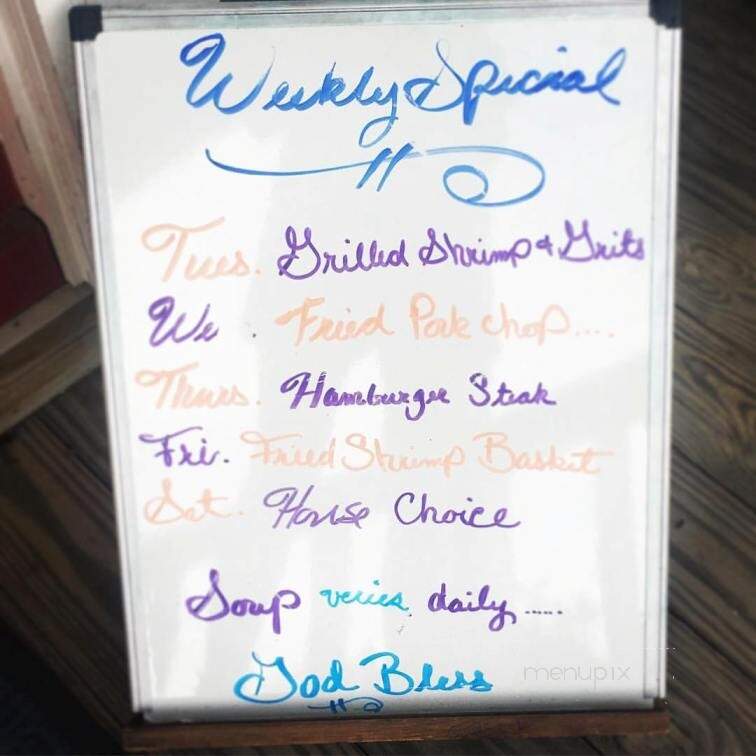 Weekly Special
Tues. Grilled Shrimp & Grits
We . Fried Pork chop....
Thurs. Hamburger Steak
Fri. Fried Shrimp Basket
Sat. House Choice
Soup veries daily.....
God Bless
menupix